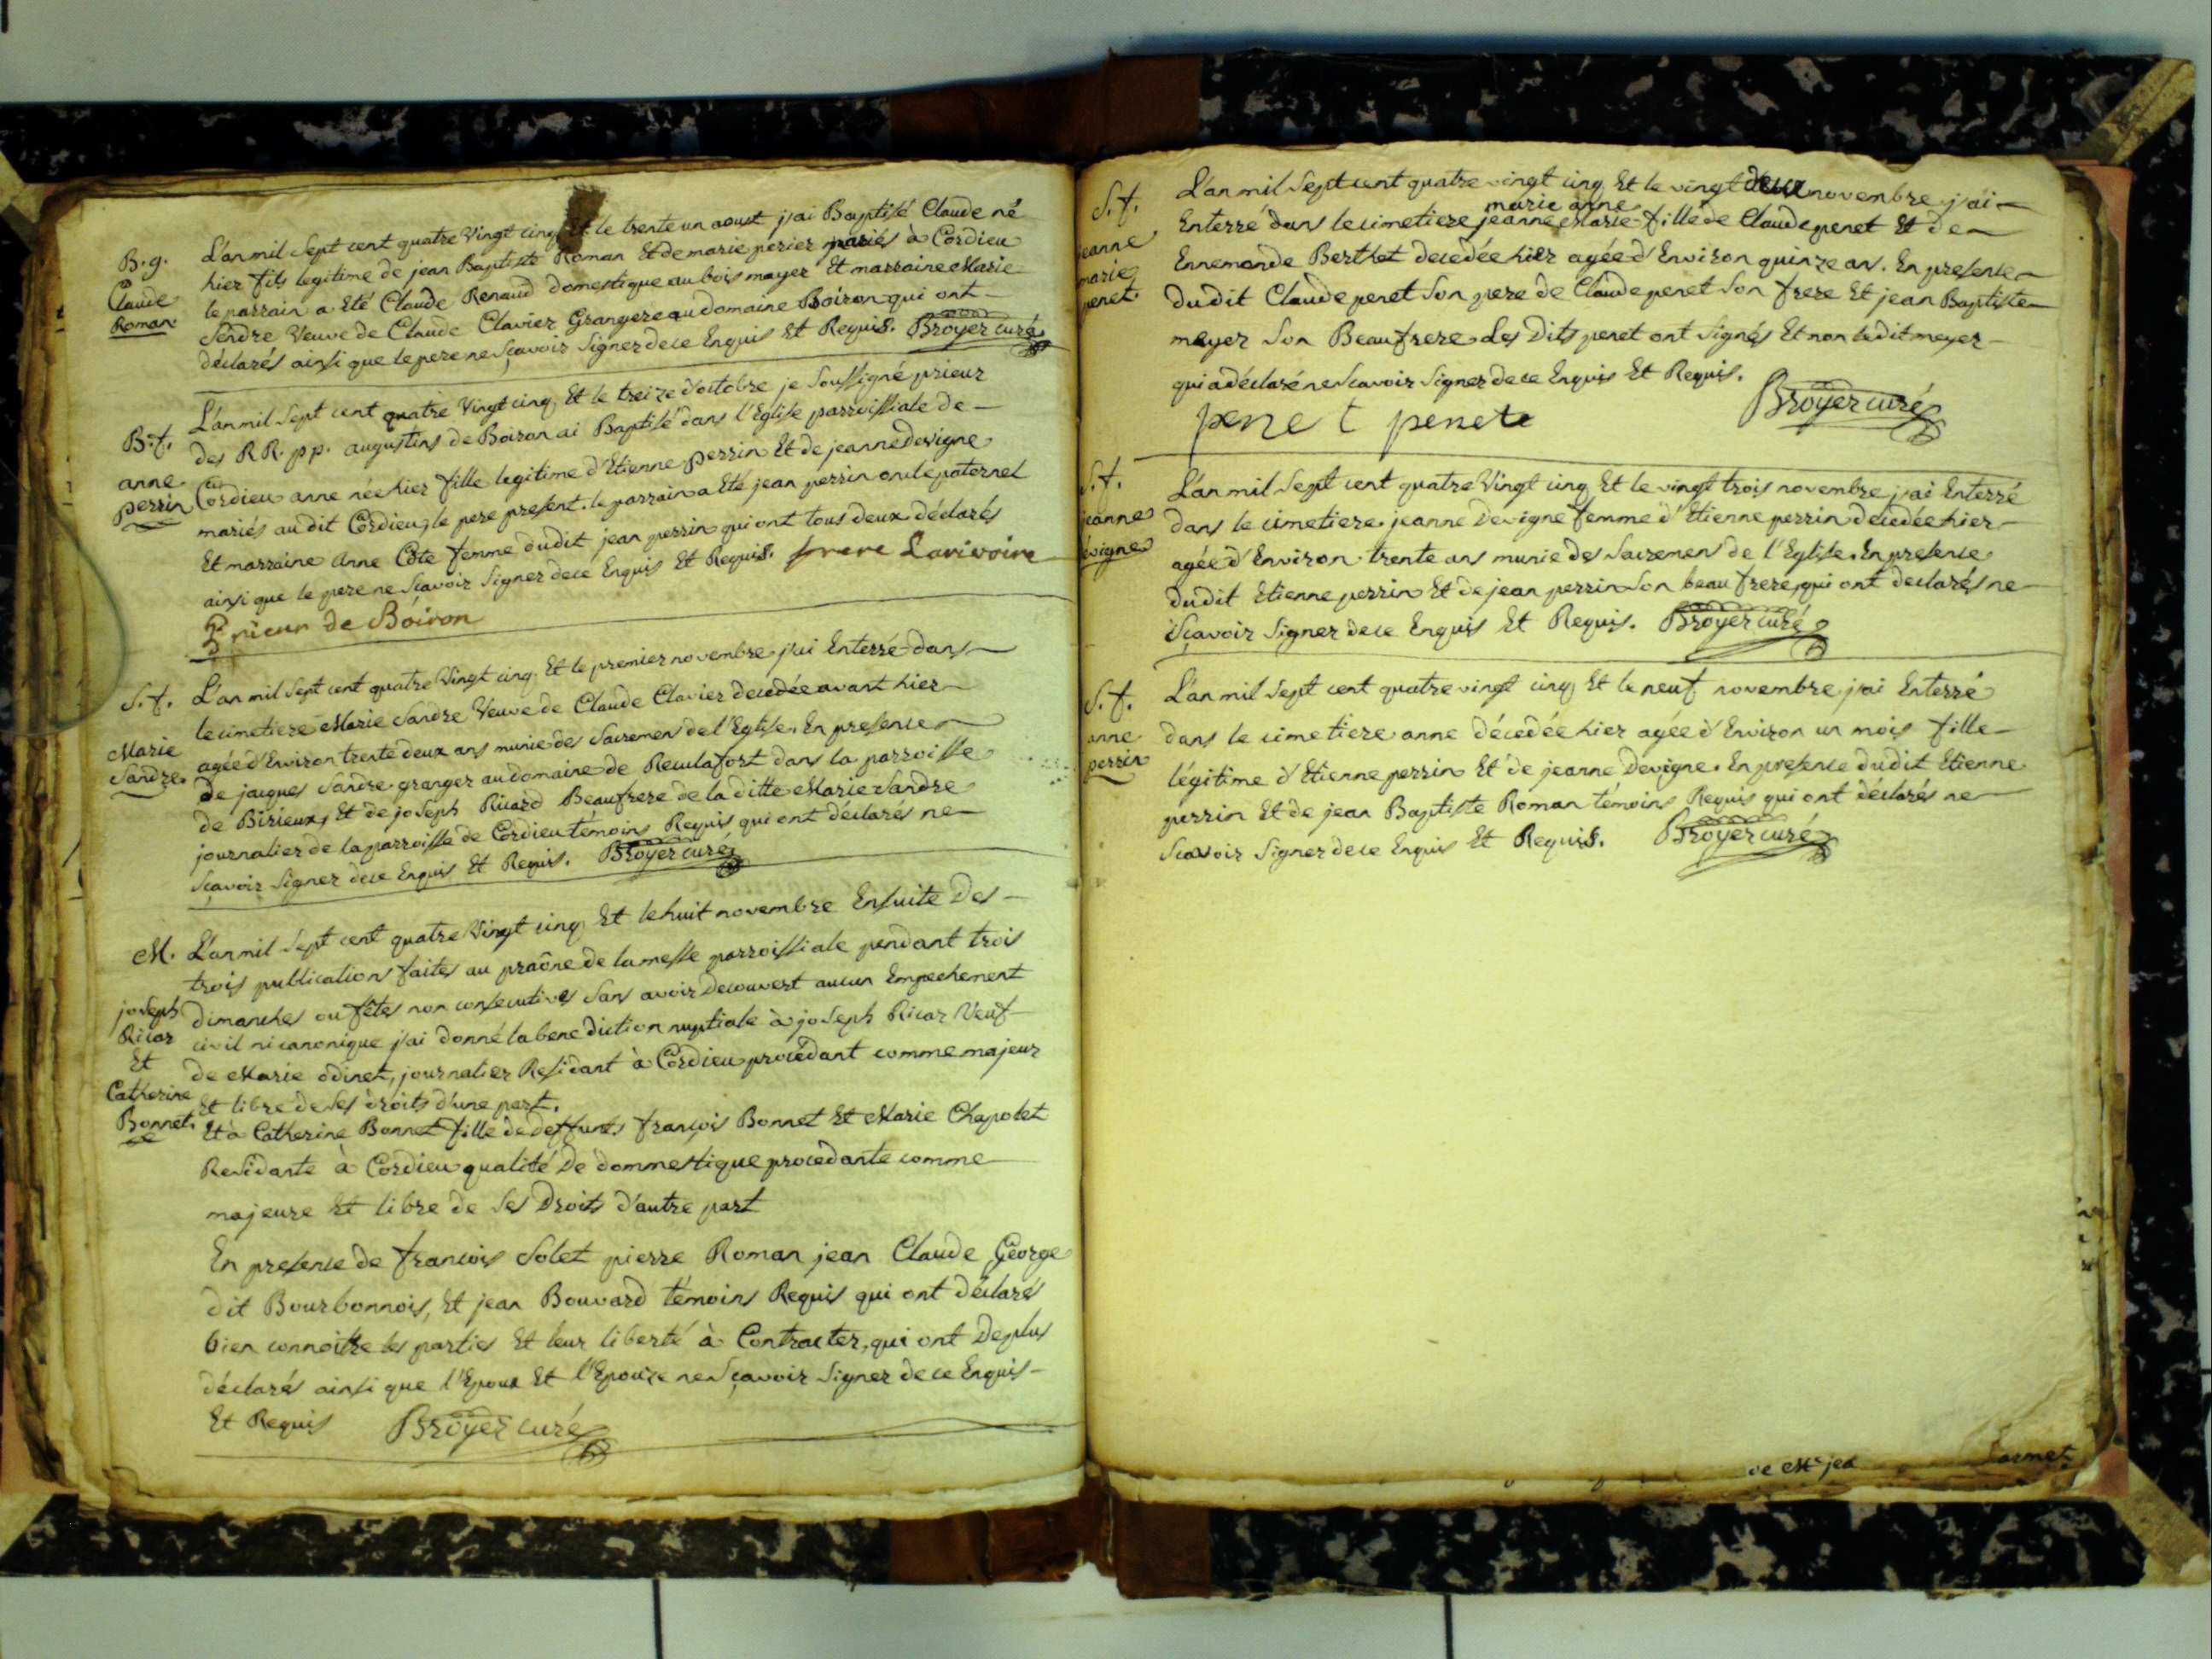 B.g.
Claude
Roman
L'an mil sept cent quatre vingt cinq Et le trente un aoust j'ai Baptisé Claude né
hier fils legitime de jean Baptiste Roman Et de marie perier mariés à Cordieu
le parrain a Eté Claude Renaud domestique au bois mayer Et marraine Marie
Sandre Veuve de Claude Clavier Grangere au domaine Boiron qui ont
déclarés ainsi que le pere ne sçavoir signer de ce Enquis Et Requis. Broyer curé
B.f.
anne
perrin
L'an mil sept cent quatre Vingt cinq Et le treize d'octobre je soussigné prieur
des RR. pp. augustins de Boiron ai Baptisé dans l'Eglise parroissiale de
Cordieu anne née hier fille legitime d'Etienne perrin Et de jeanne devigne
mariés au dit Cordieu, le pere present. le parrain a Eté jean perrin oncle paternel
Et marraine Anne Côte femme dudit jean perrin qui ont tous deux déclarés
ainsi que le pere ne sçavoir signer de ce Enquis Et Requis. frere Larivoire
Prieur de Boiron
S.f.
Marie
Sandre.
L'an mil sept cent quatre Vingt cinq Et le premier novembre j'ai Enterré dans
le cimetiere Marie Sandre Veuve de Claude Clavier decedée avant hier
agée d'Environ trente deux ans munie des sacremens de l'Eglise. En presence
de jacques Sandre granger au domaine de Reculafort dans la parroisse
de Birieux, Et de joseph Ricard Beaufrere de la ditte Marie Sandre
journalier de la parroisse de Cordieu témoins Requis qui ont déclarés ne
sçavoir signer de ce Enquis Et Requis. Broyer curé
M.
joseph
Ricar
Et
Catherine
Bonnet.
L'an mil sept cent quatre Vingt cinq Et le huit novembre Ensuite des
trois publications faites au praône de la messe parroissiale pendant trois
dimanches ou fêtes non consecutives sans avoir decouvert aucun Empechement
civil ni canonique j'ai donné la benediction nuptiale à joseph Ricar Veuf
de Marie odinet, journalier Residant à Cordieu procédant comme majeur
Et libre de ses droits d'une part.
Et à Catherine Bonnet fille de deffunts françois Bonnet Et Marie Chapolet
Residante à Cordieu qualité de dommestique procedante comme
majeure Et libre de ses Droits d'autre part
En presence de francois Solet pierre Roman jean Claude George
dit Bourbonnois, Et jean Bouvard témoins Requis qui ont déclarés
bien connoitre les parties Et leur liberté à Contracter, qui ont Deplus
déclarés ainsi que l'Epoux Et l'Epouze ne sçavoir signer de ce Enquis
Et Requis Broyer curé
S.f.
jeanne
marie
penet.
L'an mil sept cent quatre vingt cinq Et le vingt deux novembre j'ai
marie anne
Enterré dans le cimetiere jeanne Marie fille de Claude penet Et de
Ennemonde Berthet decedée hier agée d'Environ quinze ans. En presence
dudit Claude penet son pere de Claude penet son frere Et jean Baptiste
meyer son Beaufrere. Les Dits penet ont signés Et non ledit meyer
qui a déclaré ne scavoir signer de ce Enquis Et Requis.
penet penet Broyer curé
S.f.
jeanne
devigne
L'an mil sept cent quatre Vingt cinq Et le vingt trois novembre j'ai Enterré
dans le cimetiere jeanne Devigne femme d'Etienne perrin decedée hier
agée d'Environ trente ans munie des sacremens de l'Eglise. En presence
dudit Etienne perrin Et de jean perrin son beau frere, qui ont declarés ne
sçavoir signer de ce Enquis Et Requis. Broyer curé
S.f.
anne
perrin
L'an mil sept cent quatre vingt cinq Et le neuf novembre j'ai Enterré
dans le cimetiere anne décedée hier agée d'Environ un mois fille
légitime d'Etienne perrin Et de jeanne Devigne. En presence dudit Etienne
perrin Et de jean Baptiste Roman témoins Requis qui ont déclarés ne
scavoir signer de ce Enquis Et Requis. Broyer curé